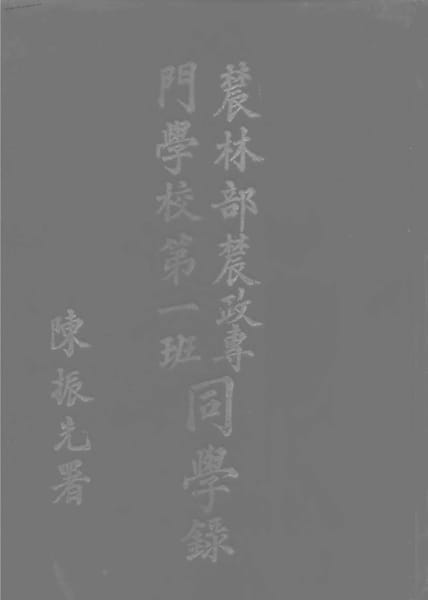 農林部農政專
門學校第一班
同學錄
陳振先署